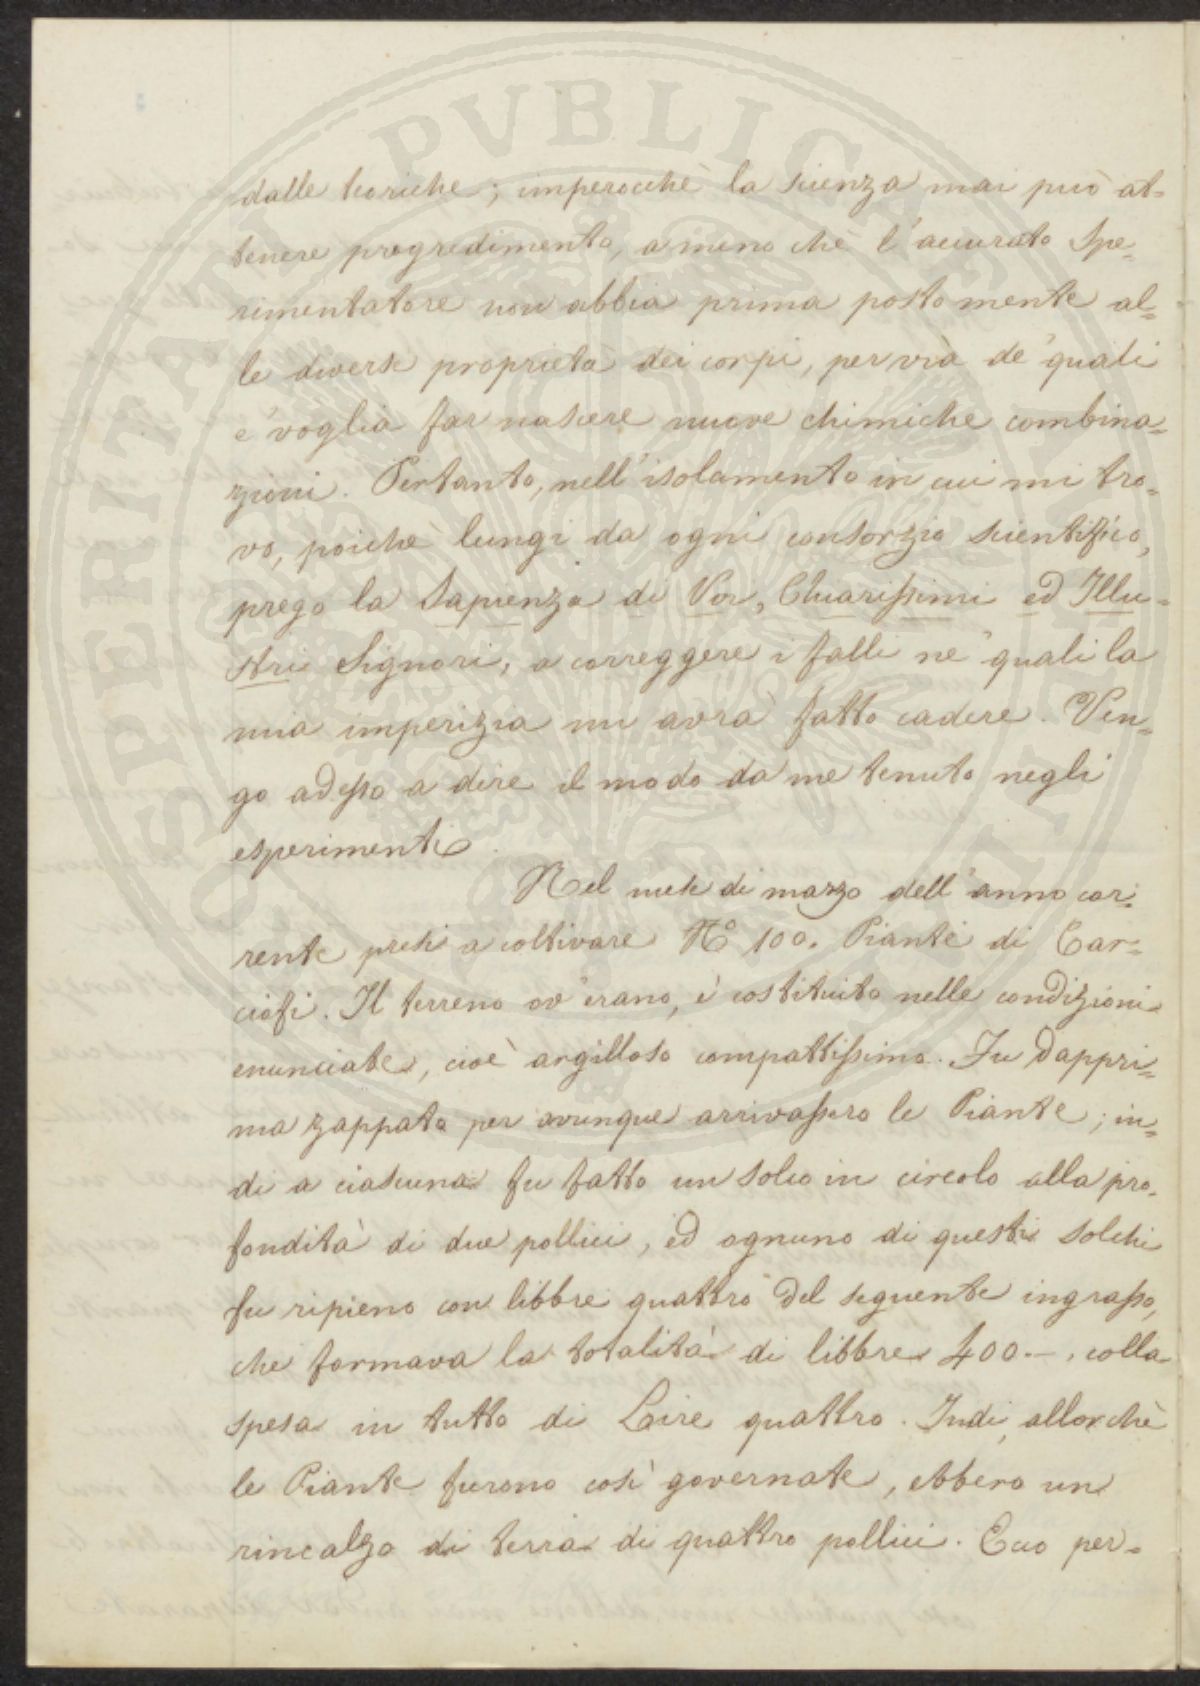 dalle teoriche; imperocchè la scienza mai può ot=
tenere progredimento, a meno che l'accurato Spe=
rimentatore non abbia prima posto mente al=
le diverse proprietà dei corpi, per via de' quali
e' voglia far nascere nuove chimiche combina=
zioni. Pertanto, nell'isolamento in cui mi tro=
vo, poichè lungi da ogni consorzio scientifico,
prego la Sapienza di Voi, Chiarissimi ed Illu=
stri Signori, a correggere i falli ne' quali la
mia imperizia mi avrà fatto cadere. Ven=
go adesso a dire il modo da me tenuto negli
esperimenti.
Nel mese di marzo dell'anno cor=
rente presi a coltivare No 100. Piante di Car=
ciofi. Il terreno ov'erano, è costituito nelle condizioni
enunciate, cioè argilloso compattissimo. Fu dappri=
ma zappato per ovunque arrivassero le Piante; in=
di a ciascuna fu fatto un solco in circolo alla pro=
fondità di due pollici, ed ognuno di questi solchi
fu ripieno con libbre quattro del seguente ingrasso,
che formava la totalità di libbre 400.—, colla
spesa in tutto di Lire quattro. Indi, allorchè
le Piante furono così governate, ebbero un
rincalzo di terra di quattro pollici. Ecco per=
PROSPERITATI PVBLICAE